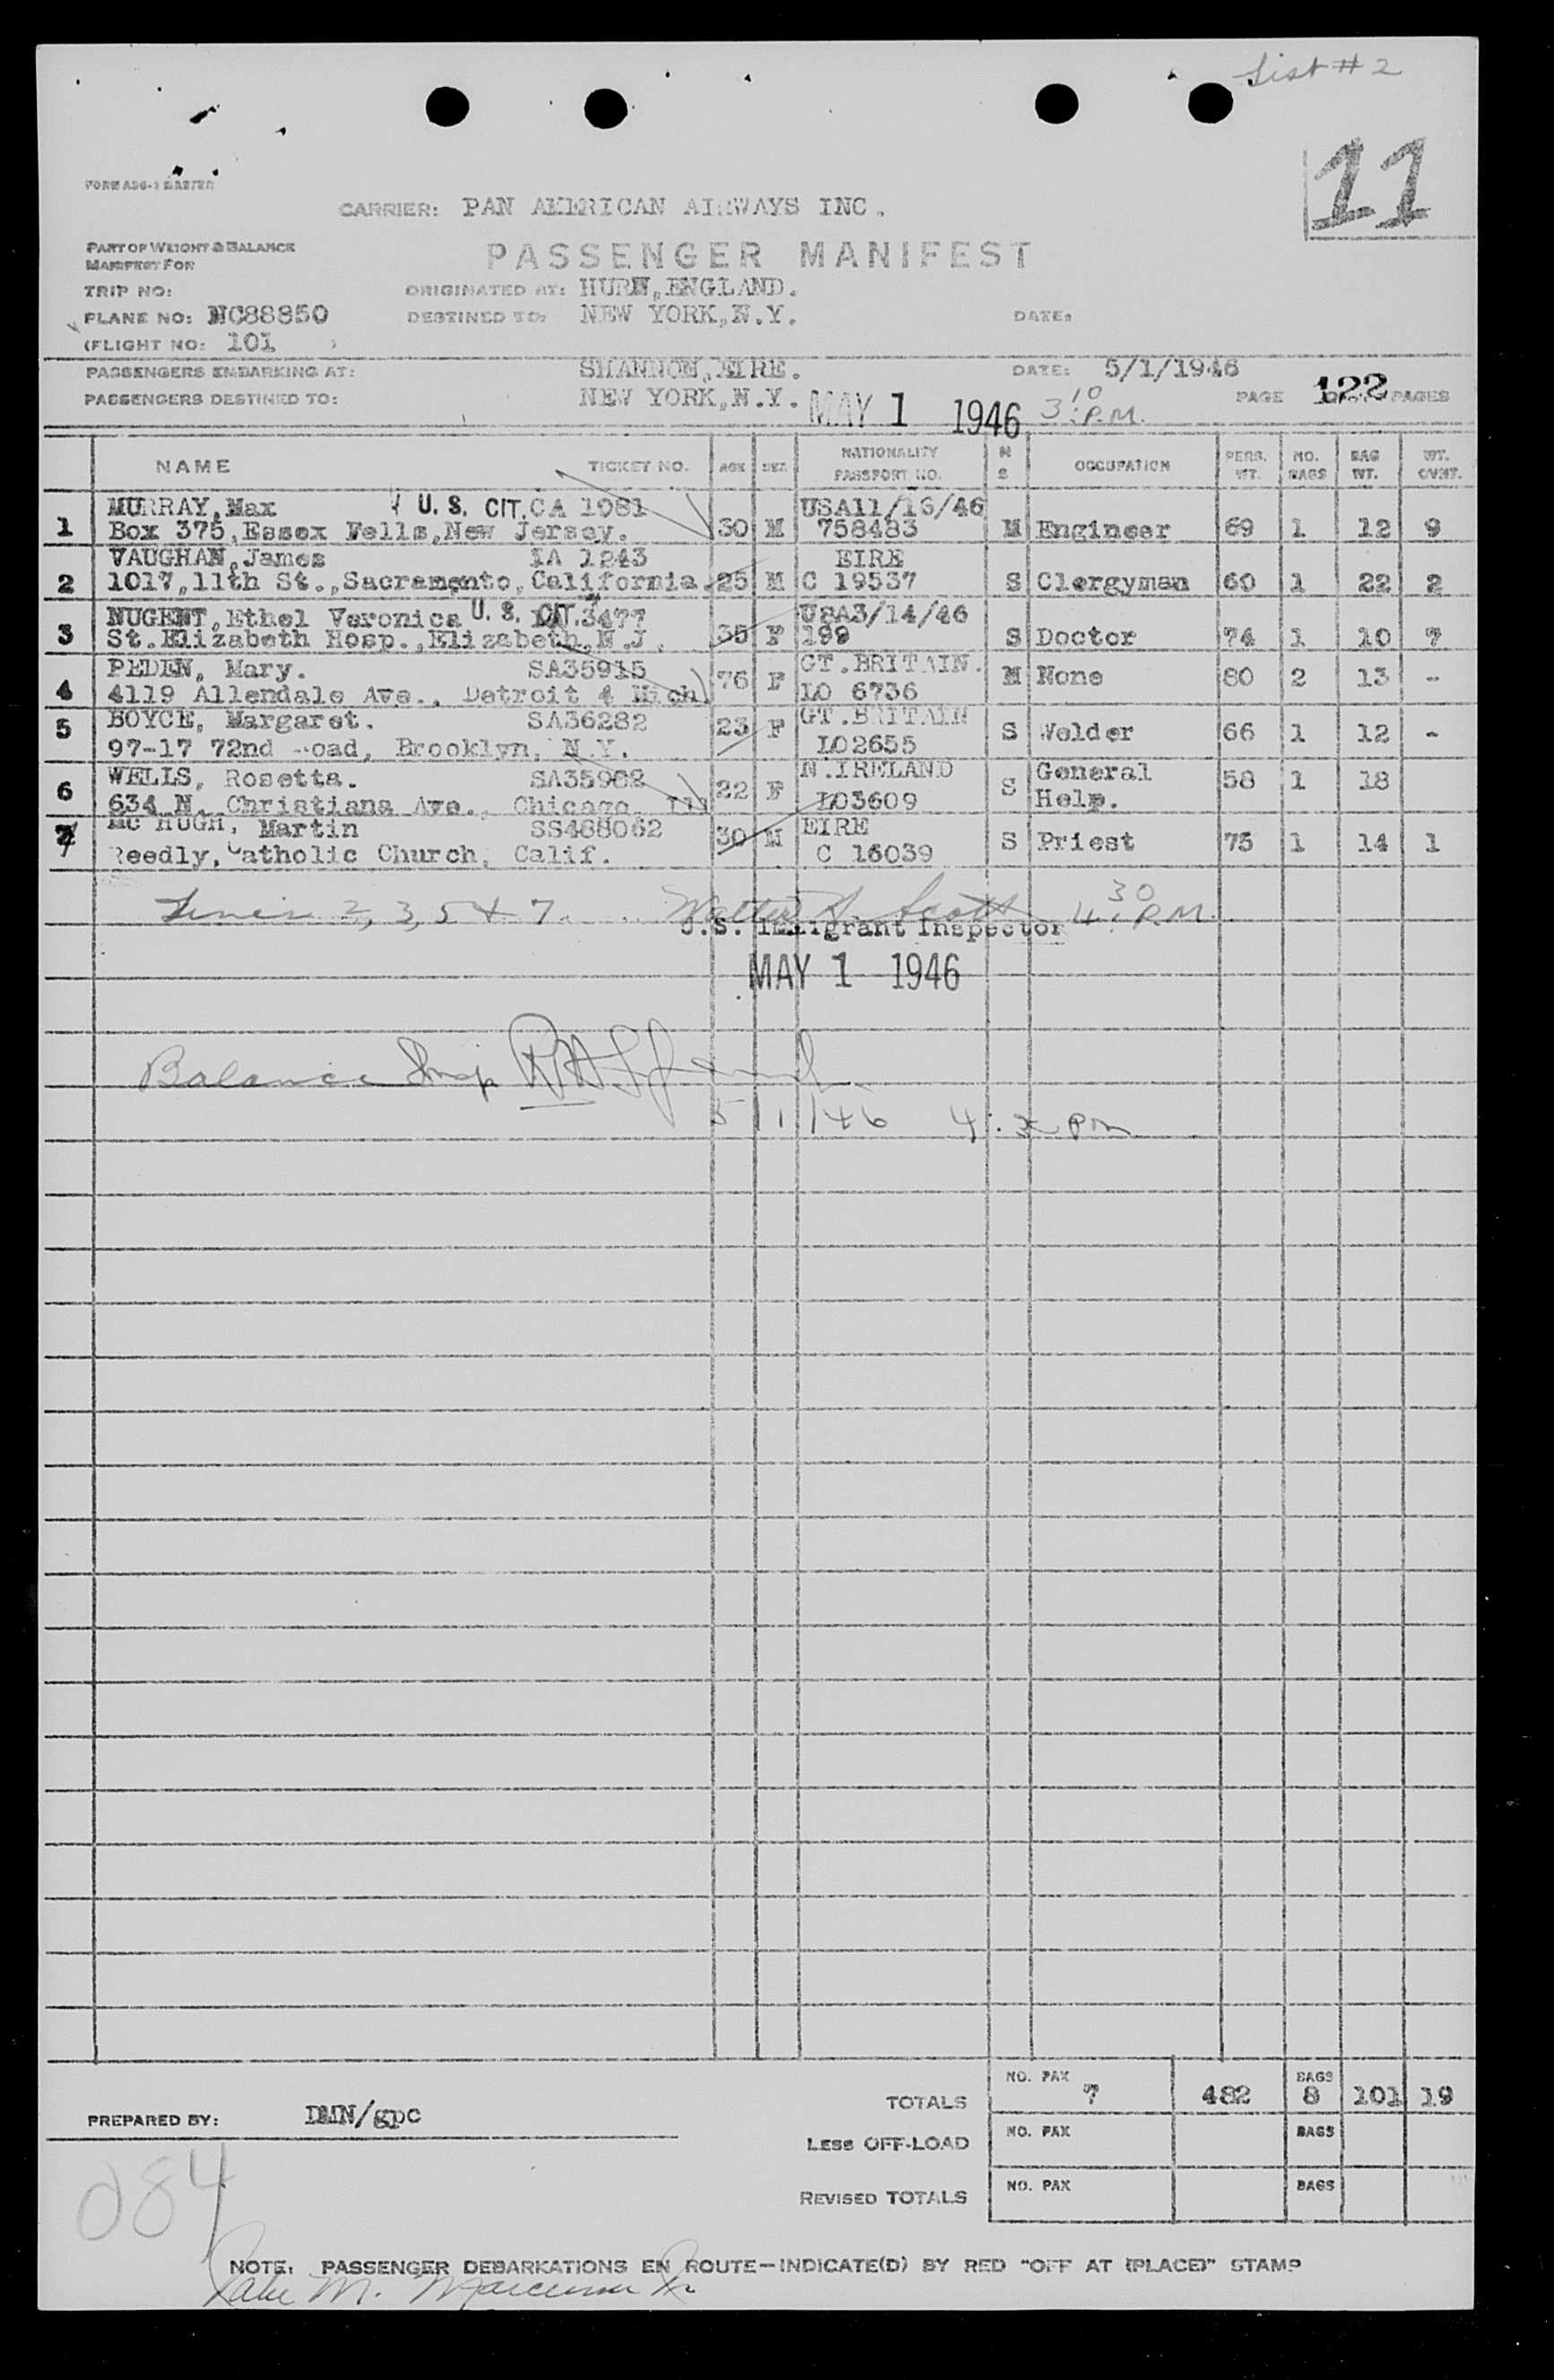 List # 2
11
FORM ASG-1 MASTER
CARRIER: PAN AMERICAN AIRWAYS INC.
PART OF WEIGHT & BALANCE
MANIFEST FOR
PASSENGER MANIFEST
TRIP NO: ORIGINATED AT: HURN, ENGLAND.
PLANE NO: NC88850 DESTINED TO: NEW YORK, N.Y. DATE:
(FLIGHT NO: 101 )
PASSENGERS EMBARKING AT: SHANNON, EIRE. DATE: 5/1/1946
PASSENGERS DESTINED TO: NEW YORK, N.Y. MAY 1 1946 3:10 P.M. PAGE PAGES
NAME TICKET NO. AGE SEX NATIONALITY PASSPORT NO. M S OCCUPATION PERS. WT. NO. BAGS BAG WT. WT. OVWT.
MURRAY, Max U. S. CIT. CA 1081 USA11/16/46
1 Box 375, Essex Fells, New Jersey. 30 M 758483 M Engineer 69 1 12 9
VAUGHAN, James IA 1243 EIRE
2 1017, 11th St., Sacramento, California. 25 M C 19537 S Clergyman 60 1 22 2
NUGENT, Ethel Veronica U. S. CIT. 3477 USA3/14/46
3 St. Elizabeth Hosp., Elizabeth, N.J. 35 F 199 S Doctor 74 1 10 7
PEDEN, Mary. SA35915 GT. BRITAIN.
4 4119 Allendale Ave., Detroit 4 Mich. 76 F LO 6736 M None 80 2 13 -
5 BOYCE, Margaret. SA36282 23 F GT. BRITAIN S Welder 66 1 12 -
97-17 72nd Road, Brooklyn, N.Y. LO2655
WELLS, Rosetta. SA35982 N. IRELAND General
6 634 N. Christiana Ave., Chicago, Ill 22 F LO3609 S Help. 58 1 18
7 Mc HUGH, Martin SS468062 30 M EIRE S Priest 75 1 14 1
Reedly, Catholic Church, Calif. C 16039
Lines 2, 3, 5 & 7. Walter A. Scott 4:30 P.M.
U.S. Immigrant Inspector
MAY 1 1946
Balance Insp
5/1/46 4: PM
TOTALS NO. PAX 7 482 BAGS 8 101 19
PREPARED BY: DMN/gpc
LESS OFF-LOAD NO. PAX BAGS
REVISED TOTALS NO. PAX BAGS
084
NOTE: PASSENGER DEBARKATIONS EN ROUTE—INDICATE(D) BY RED "OFF AT (PLACE)" STAMP